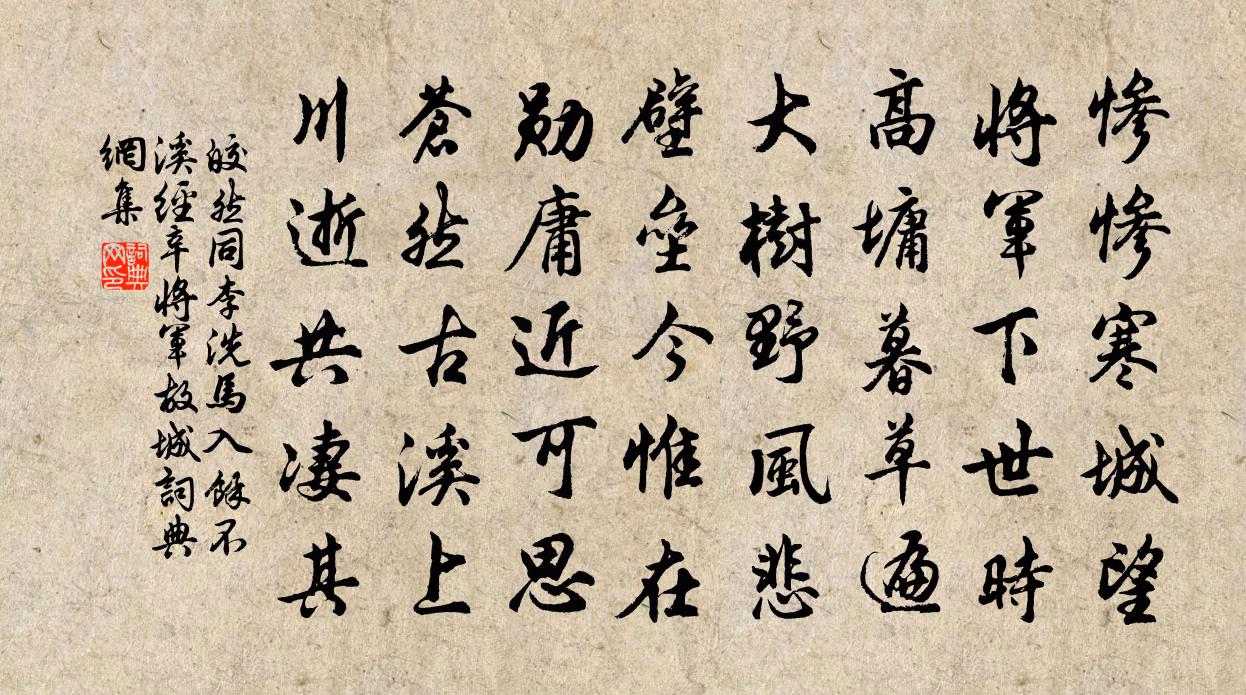 慘慘寒城望
將軍下世時
高墉暮草遍
大樹野風悲
壁壘今惟在
勛庸近可思
蒼然古溪上
川逝共凄其
皎然同李洗馬入餘不
溪經辛將軍故城詞典
網集
詞典
网印